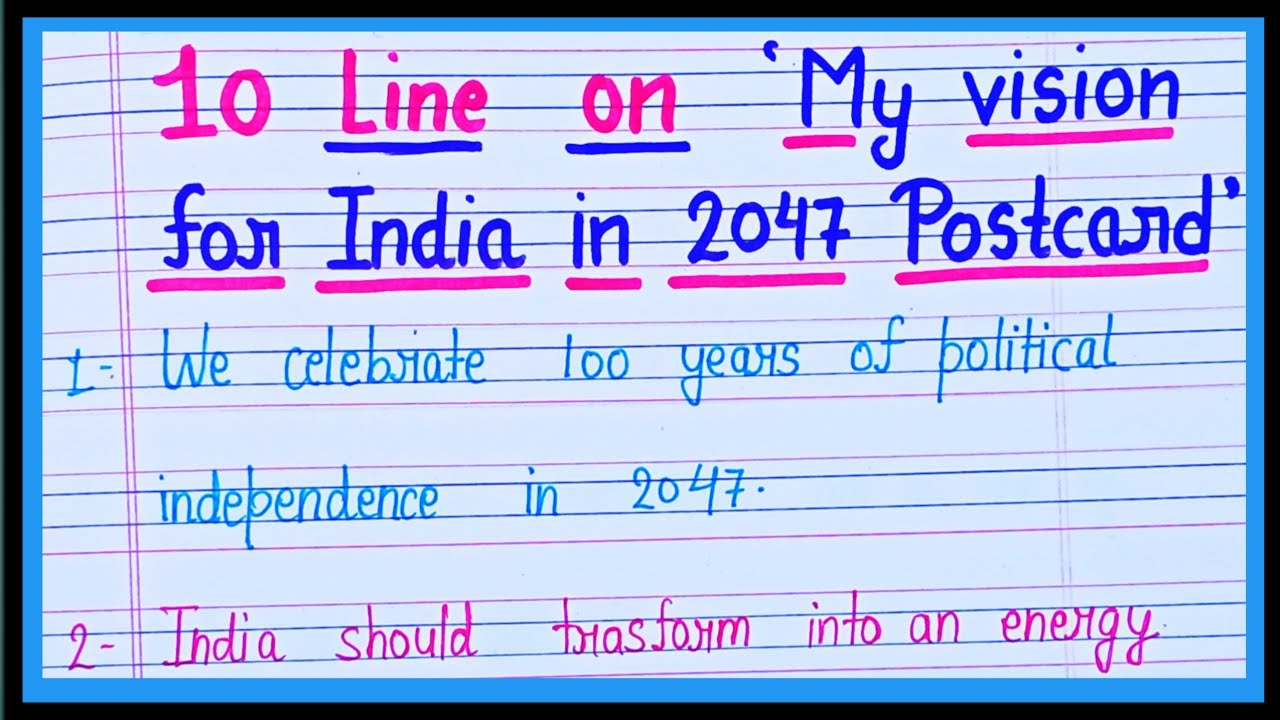 10 Line on 'My vision
for India in 2047 Postcard'
1- We celebrate 100 years of political
independence in 2047.
2- India should trasform into an energy